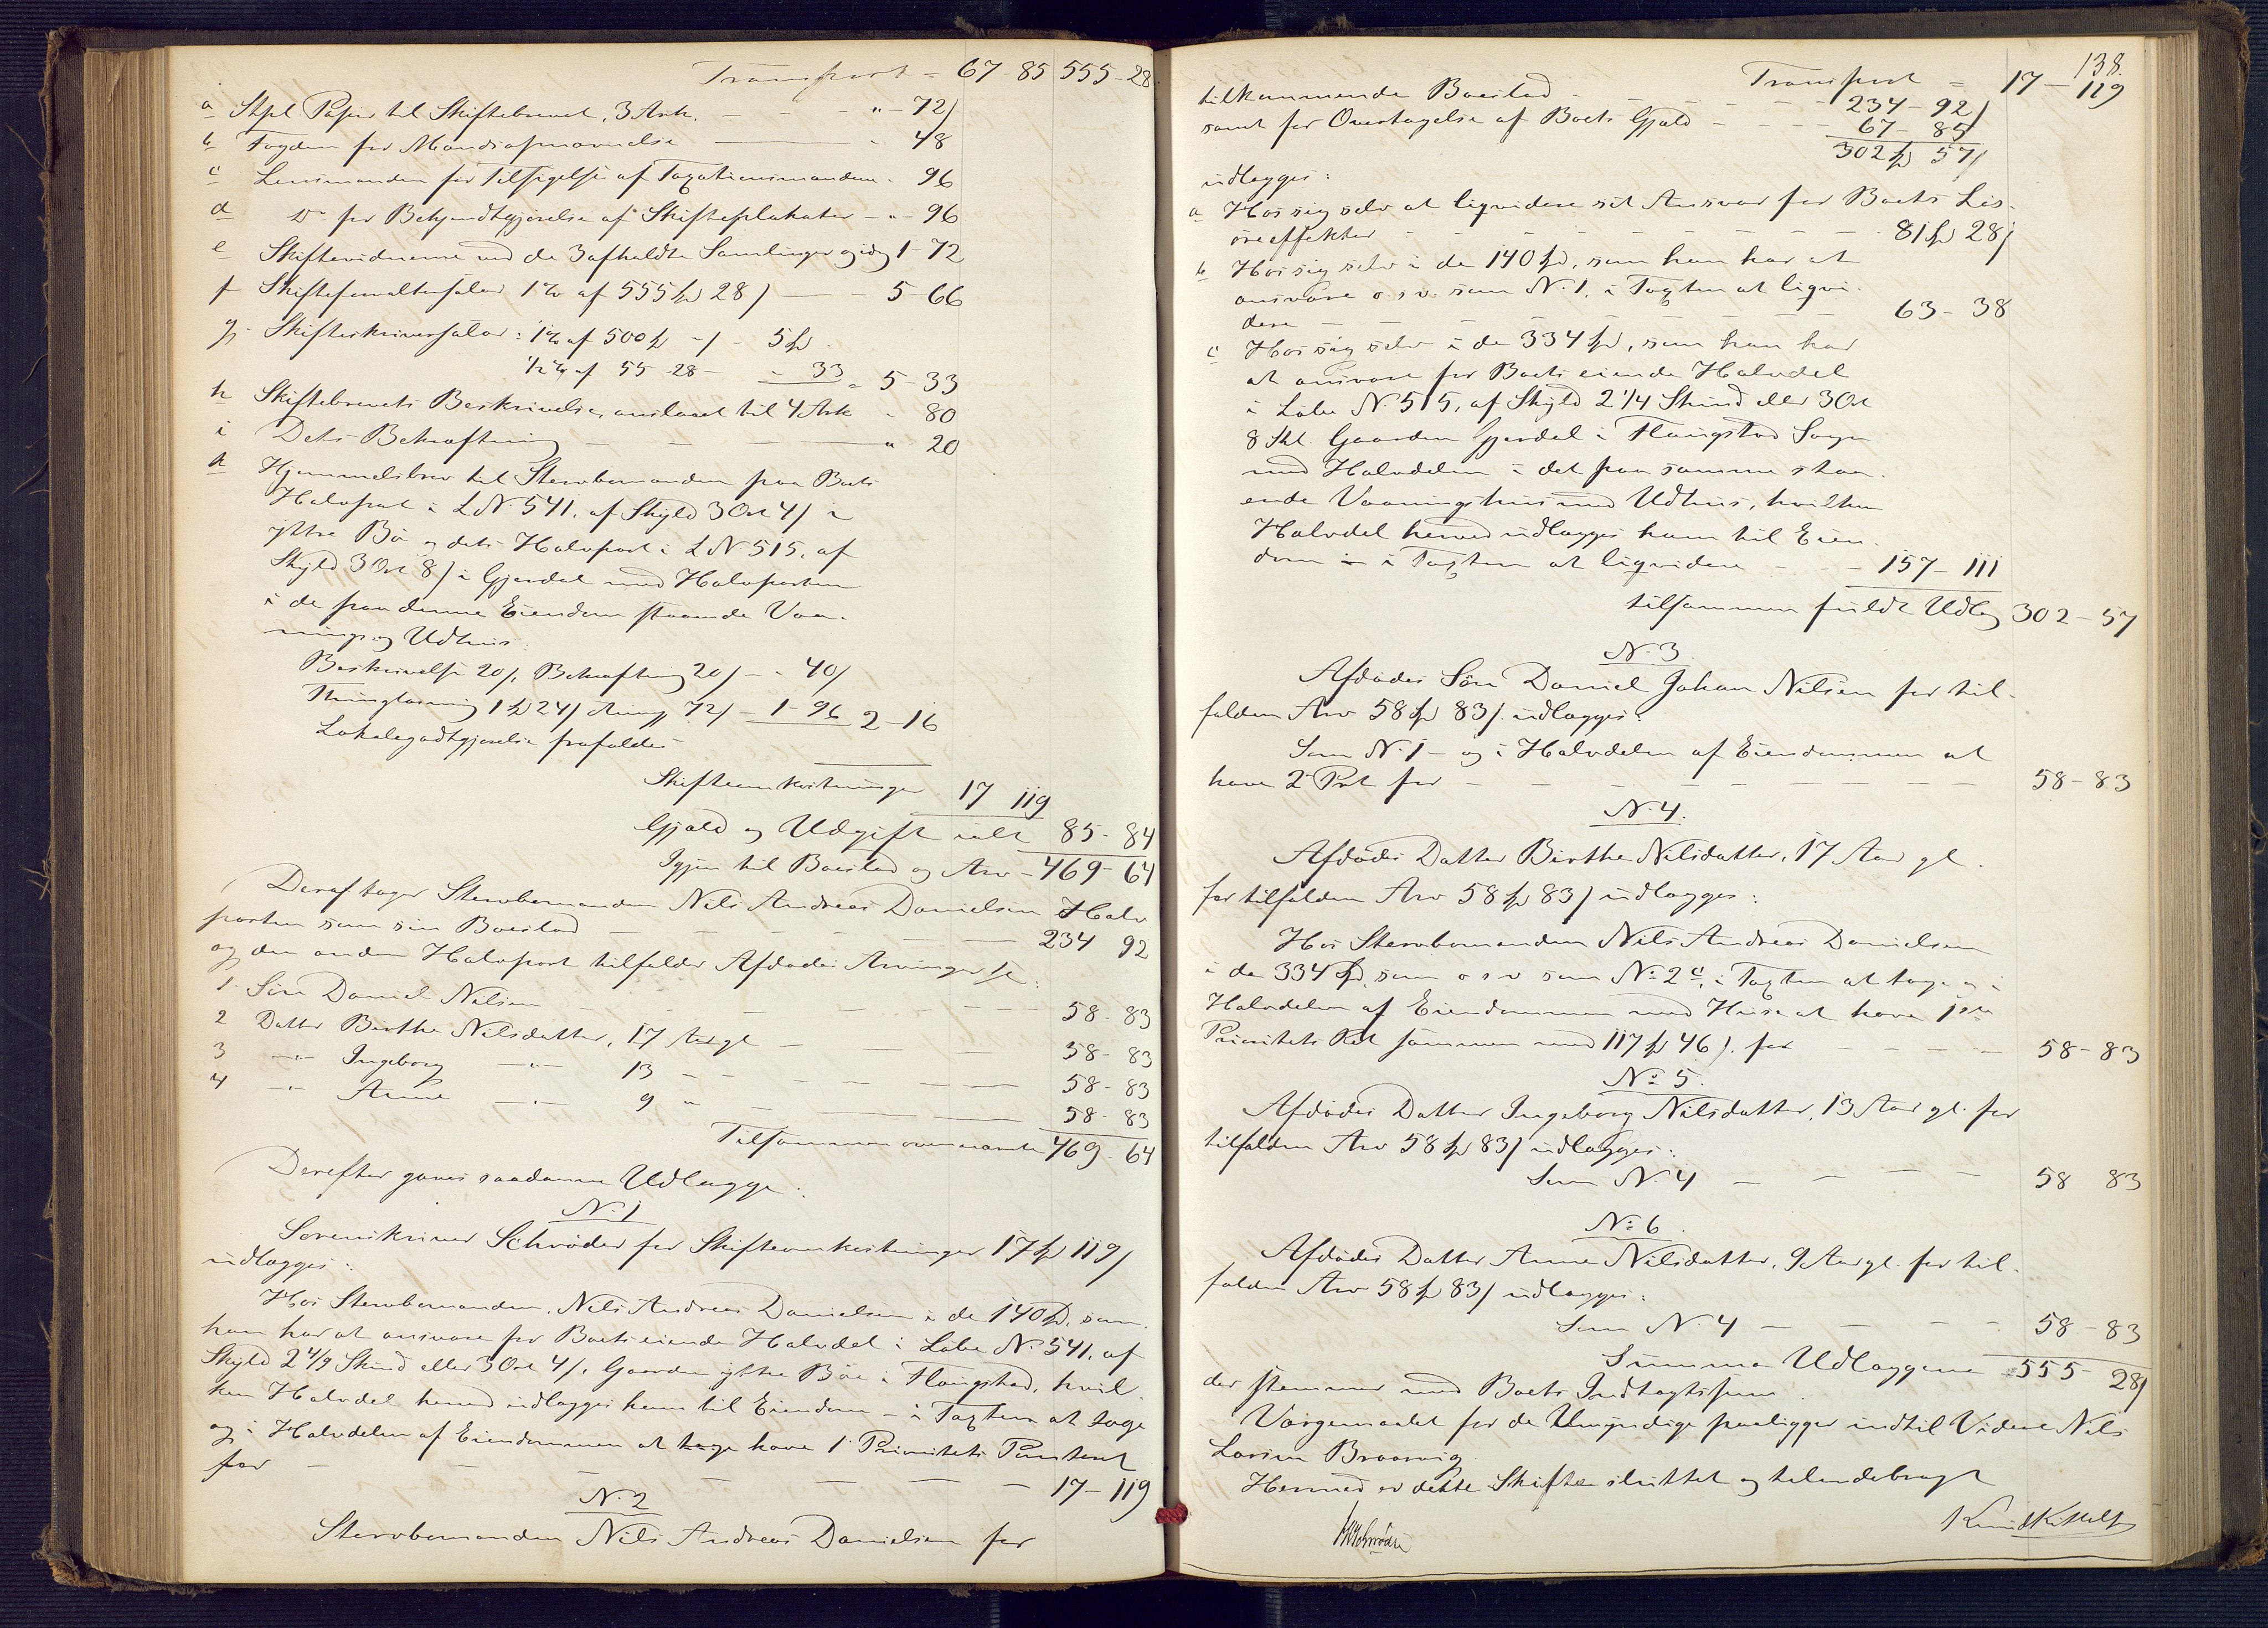 Transport = 67-85 555-28
a Stpl. Papir til Skiftebrevet, 3 Ark. — — - " - 72/
b Fogden for Mændsopnævnelse — - 48
c Lensmanden for Tilsigelse af Taxationsmændene - 96
d Do for Bekjendtgjørelse af Skifteplakater - " - 96
e Skiftevidnerne ved de 3 afholdte Samlinger 1-72
f Skifteforvaltersalær 1% af 555 Spd 28/ — - 5-66
g Skifteskriversalær: 1% af 500 Spd -/- 5 Spd
1/2% af 55-28 - - 33 = 5-33
h Skiftebrevets Beskrivelse, anslaaet til 4 Ark - 80
i Dets Bekræftning — — — " 20
k Hjemmelsbrev til Stervbomanden paa Boets
Halvpart i LN. 541, af Skyld 3 Ort 4/ i
yttre Bø og dets Halvpart i LN 515, af
Skyld 3 Ort 8/ i Gjerdal med Halvparten
i de paa denne Eiendom staaende Vaa-
nings og Udhus:
Beskrivelse 20/, Bekræftning 20/ - - 40/
Thinglæsning 1 Spd 24/ 72/ - 1-96 2-16
Lokalegodtgjørelse frafaldes
Skifteomkostninger 17 119
Gjæld og Udgift ialt 85-84
Igjen til Boeslod og Arv - 469-64
Deraf tager Stervbomanden Nils Andreas Danielsen Halv
parten som sin Boeslod — — — 234 92
og den anden Halvpart tilfalder Afdødes Arvinger
1 Søn Daniel Nilsen — — — 58-83
2 Datter Berthe Nilsdatter, 17 Aar gl — — 58-83
3 -"- Ingeborg -"- 13 - - — — 58-83
4 -"- Anne -"- 9 " — — 58-83
Tilsammen ovennævnte 469-64
Derefter gjøres saadanne Udlægge:
N. 1
Sorenskriver Schrøder for Skifteomkostninger 17 Spd 119/
udlægges:
Hos Stervbomanden, Nils Andreas Danielsen i de 140 Spd, som
han har at ansvare for Boets eiende Halvdel i Løbe N. 541, af
Skyld 2 4/9 Skind eller 3 Ort 4/, Gaarden yttre Bøe i Flangstad, hvil-
ken Halvdel herved udlægges ham til Eiendom - i Taxten at tage
og i Halvdelen af Eiendommen at have 1 Prioritets Panteret
for — — — 17-119
N. 2
Stervbomanden Nils Andreas Danielsen for
138.
Transport - 17-119
tilkommende Boeslod - — — 234-92/
samt for Overtagelse af Boets Gjæld - — 67-85
302 Spd 57/
udlægges:
a Hos sig selv at liqvidere sit Ansvar for Boets Løs-
øreeffekter — — — 81 Spd 28/
b Hos sig selv i de 140 Spd, som han har at
ansvare o.s.v. som N. 1, i Taxten at liqvi-
dere — — — 63-38
c Hos sig selv i de 334 Spd, som han har
at ansvare for Boets eiende Halvdel
i Løbe N. 515, af Skyld 2 1/4 Skind eller 3 Ort
8 Skl. Gaarden Gjerdal i Flangstad Sogn
med Halvdelen i det paa samme staa-
ende Vaaningshus med Udhus, hvilken
Halvdel herved udlægges ham til Eien-
dom - i Taxten at liqvidere — - 157-111
tilsammen fuldt Udlæg 302-57
N. 3
Afdødes Søn Daniel Johan Nilsen for til-
falden Arv 58 Spd 83/ udlægges:
Som N. 1 - og i Halvdelen af Eiendommen at
have 2 Prt for — — — 58-83
N. 4.
Afdødes Datter Birthe Nilsdatter, 17 Aar gl.
for tilfalden Arv 58 Spd 83/ udlægges:
Hos Stervbomanden Nils Andreas Danielsen
i de 334 Spd, som o s v som No 2 c, i Taxten at tage og i
Halvdelen af Eiendommen med Huse at have 1ste
Prioritets Ret sammen med 117 Spd 46/. for — — 58-83
No 5.
Afdødes Datter Ingeborg Nilsdatter, 13 Aar gl. for
tilfalden Arv 58 Spd 83/ udlægges:
Som N. 4 — — — 58 83
No 6.
Afdødes Datter Anne Nilsdatter, 9 Aar gl. for til-
falden Arv 58 Spd 83/ udlægges:
Som N. 4 — — — 58-83
Summa Udlæggene 555-28/
der stemmer med Boets Indtægtssum.
Værgemaalet for de Umyndige paaligger indtil Videre Nils
Larsen
Hermed er dette Skifte sluttet og tilendebragt
Schrøder
Knud Kittelsen